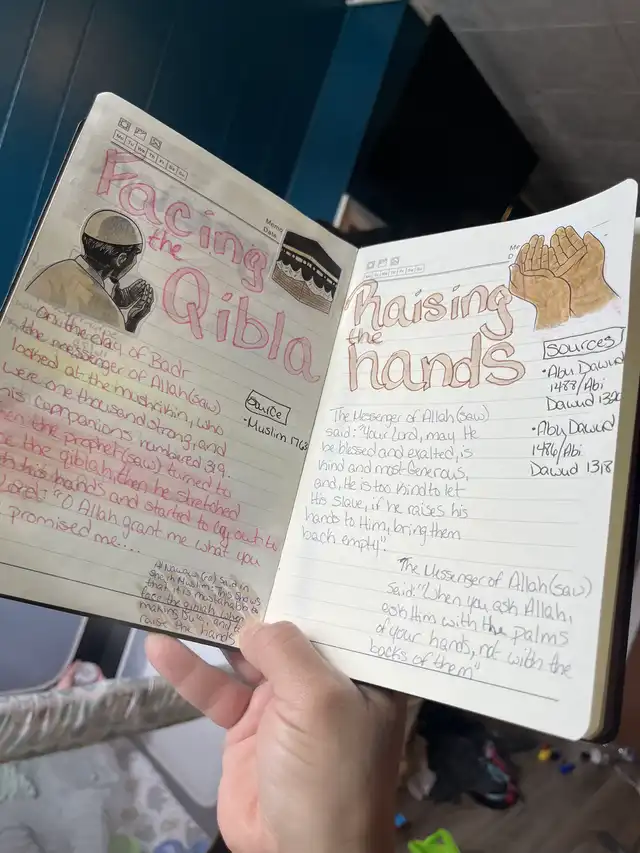 Mo Tu We Th Fr Sa Su
Memo
Date
Facing
the
Qibla
On the day of Badr
the messenger of Allah (saw)
looked at the mushrikin, who
were one thousand strong, and
his companions numbered 319.
the prophet (saw) turned to
the qiblah, then he stretched
his hands and started to cry out to
Lord: "O Allah grant me what you
promised me...
Source
• Muslim 1763
Al Nawawi (ra) said in
sharh Muslim: This shows
that it is mustahabb to
face the qiblah when
making Dua, and to
raise the hands
Raising
the
hands
sources
• Abu Dawud
1488/Abi
Dawud 1320
• Abu Dawud
1486/Abi
Dawud 1318
The Messenger of Allah (saw)
said: "Your Lord, may He
be blessed and exalted, is
Kind and most Generous,
and He is too Kind to let
His slave, if he raises his
hands to Him, bring them
back empty".
The Messenger of Allah (saw)
said: "When you ask Allah,
ask Him with the palms
of your hands, not with the
backs of them"